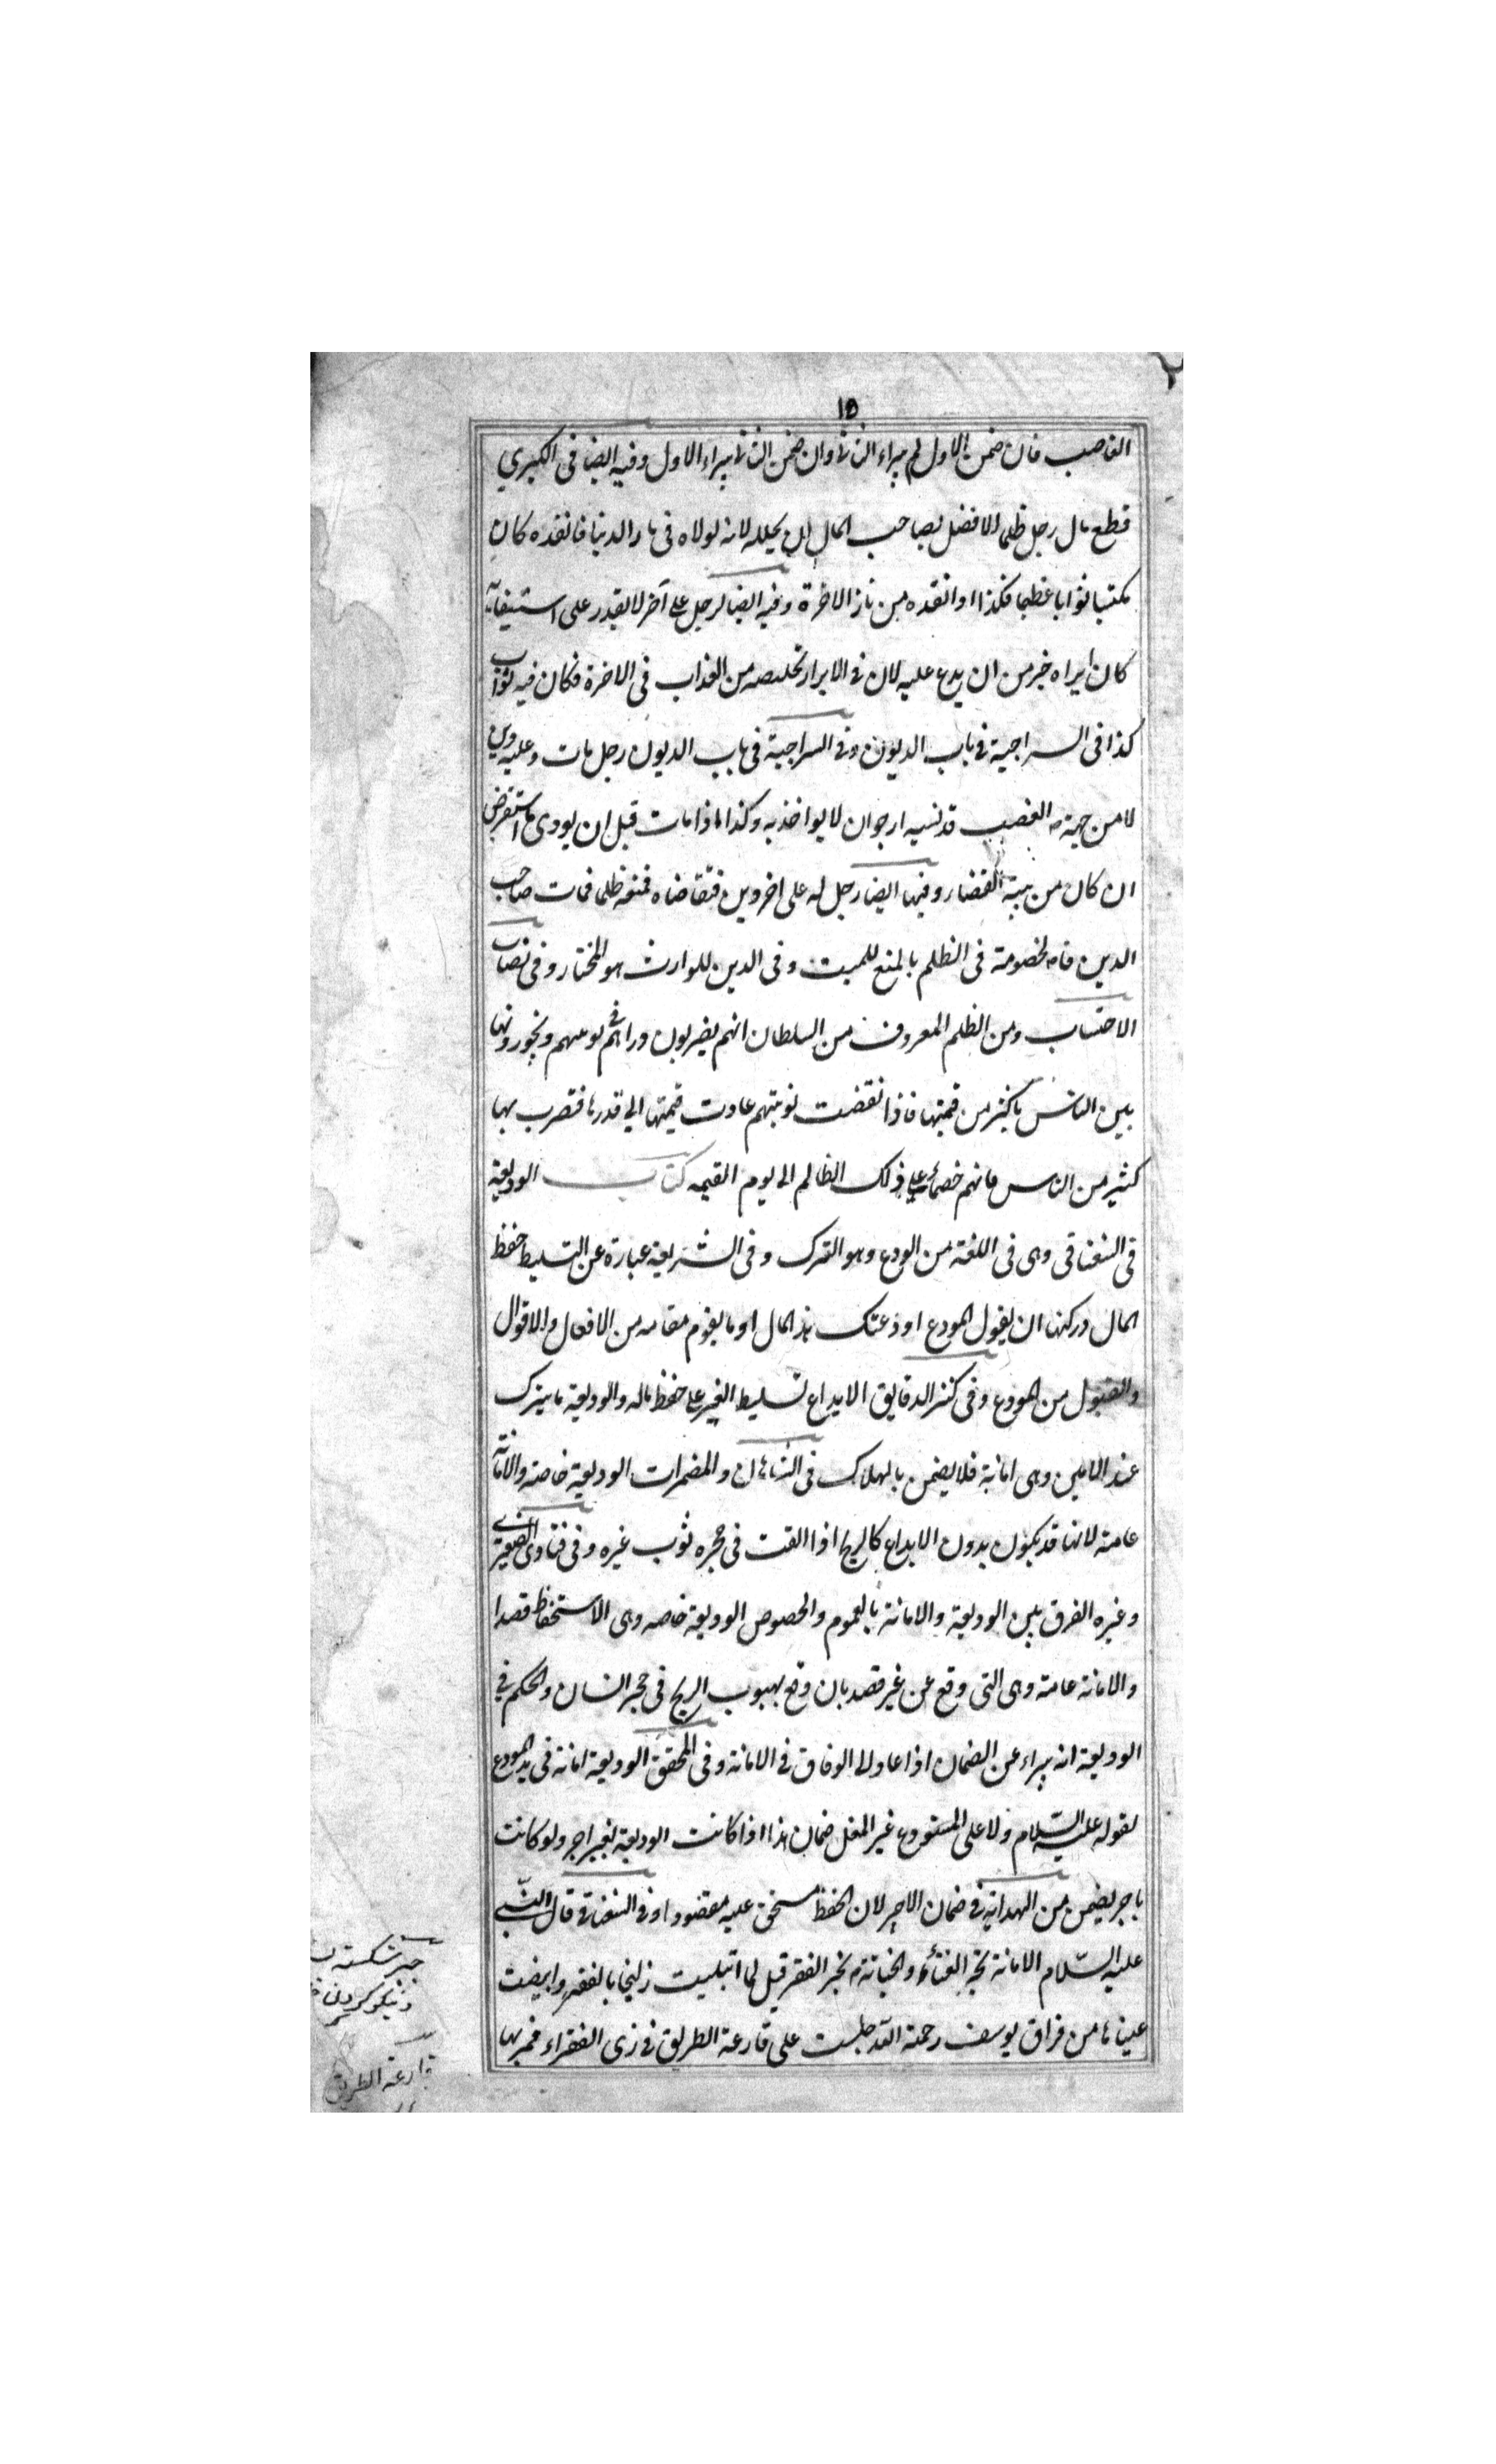 ١٥
الغاصب فان ضمن الاول لم يبراء الثانى وان ضمن الثانى يبراء الاول وفيه ايضا فى الكبرى
قطع مال رجل ظلما الافضل لصاحب المال ان يحلله لانه لولاه فى نار الدنيا فانقذه كان
مكتسبا ثوابا عظيما فكذا اذا انقذه من نار الاخرة وفيه ايضا لرجل على آخر لا يقدر على استيفائه
كان ابراه خير من ان يدع عليه لان فى الابراء تخليصه من العذاب فى الاخرة فكان فيه ثواب
كذا فى السراجية فى باب الديون وفى السراجية فى باب الديون رجل مات وعليه دين
لا من جهته الغصب قد نسيه ارجوان لا يواخذ به وكذا اذا مات قبل ان يودى ما استقرض
ان كان من نيته القضاء وفيها ايضا رجل له على اخر دين فتقاضاه فمنعه ظلما فمات صاحب
الدين فالخصومة فى الظلم بالمنع للميت وفى الدين للوارث هو المختار وفى نصاب
الاحتساب ومن الظلم المعروف من السلطان انهم يضربون دراهم فى يومهم ويجورونها
بين الناس باكثر من قيمتها فاذا نقضت نوبتهم عادت قيمتها الى قدرها فتصرب بها
كثير من الناس فانهم خصماء على ذلك الظالم الى يوم القيمه كتاب الوديعة
فى السغناقى وهى فى اللغة من الودع وهو الترك وفى الشريعة عبارة عن التسليط حفظ
المال وركنها ان يقول المودع اودعتك هذا المال او ما يقوم مقامه من الافعال والاقوال
والقبول من المودع وفى كنز الدقايق الايداع تسليط الغير على حفظ ماله والوديعة ما يترك
عند الامين وهى امانة فلا يضمن بالهلاك فى الشاهان والمضمرات الوديعة خاصة والامانة
عامة لانها قد يكون بدون الايداع كالريح اذا القت فى حجره ثوب غيره وفى فتاوى الصغرى
وغيره الفرق بين الوديعة والامانة بالعموم والخصوص الوديعة خاصه وهى الاستحفاظ قصدا
والامانة عامة وهى التى وقع عن غير قصد بان وقع بهبوب الريح فى حجر انسان والحكم فى
الوديعة انه يبراء عن الضمان اذا عاد الى الوفاق فى الامانة وفى المحقق الوديعة امانة فى يد المودع
لقوله عليه السّلام ولا على المستودع غير المغل ضمان هذا اذا كانت الوديعة بغير اجر ولو كانت
باجر يضمن من الهداية فى ضمان الاجير لان الحفظ مستحق عليه مقصودا وفى السغناقى قال النّبى
عليه السّلام الامانة تجر الغناء والخيانة تجر الفقر قيل لما ابتليت زليخا بالفقر وابيضت
عيناها من فراق يوسف رحمة الله جلست على قارعة الطريق فى زى الفقراء فمر بها
جبر شكسته
و نيكو كردن
قارعة الطريق